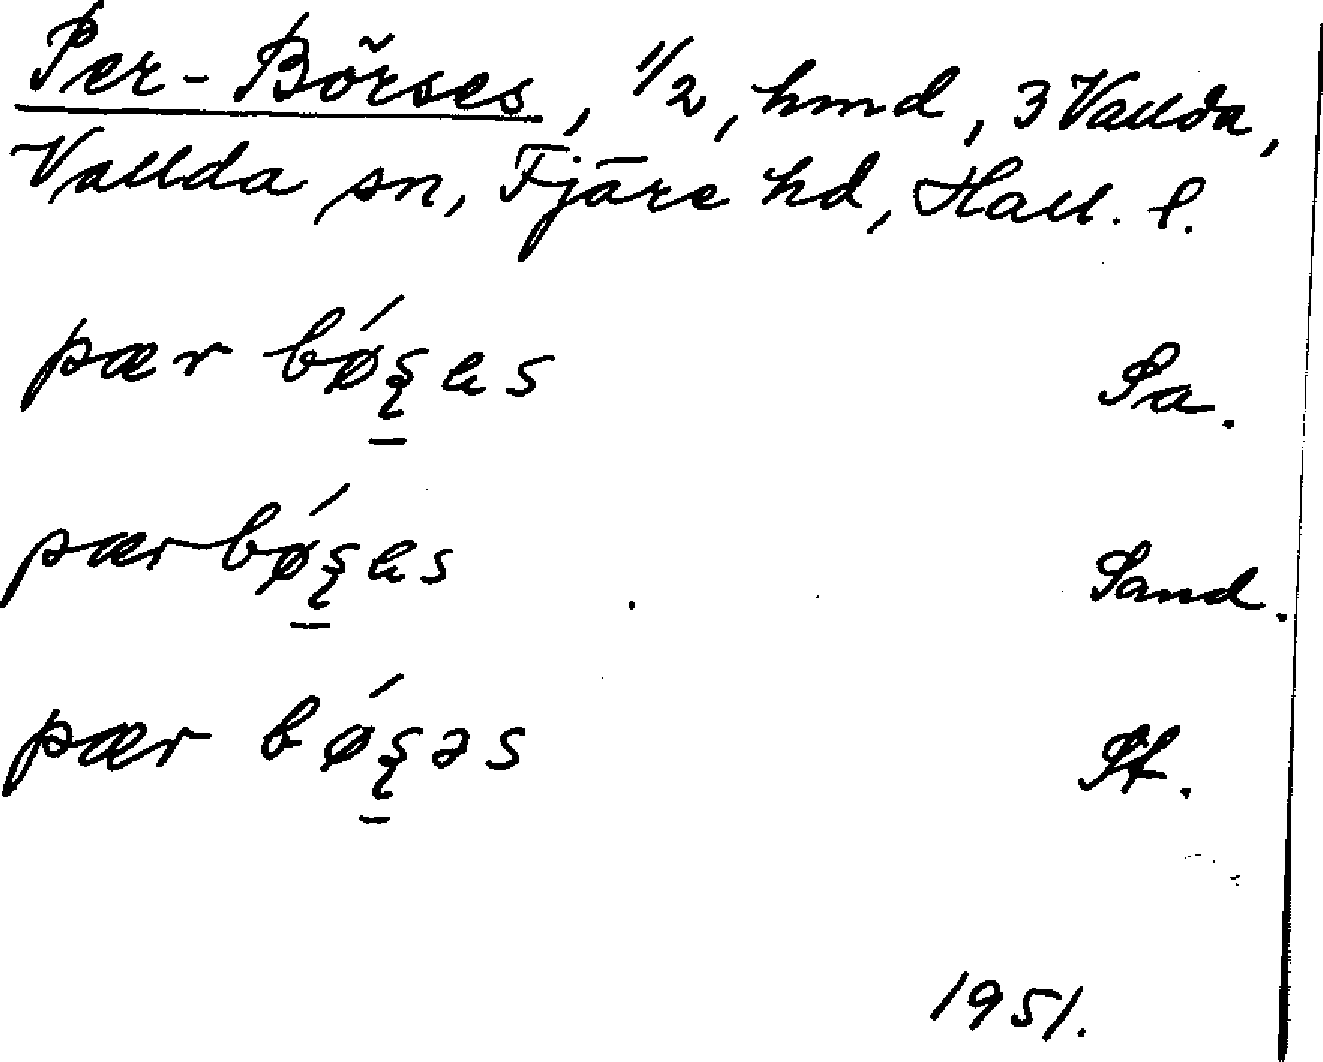 Per-Börses, 1/2, hmd, 3 Vallda,
Vallda sn, Fjäre hd, Hall. l.
pær bǿʂes Pa.
pærbǿʂes Sand.
pær bǿʂəs Pf.
1951.